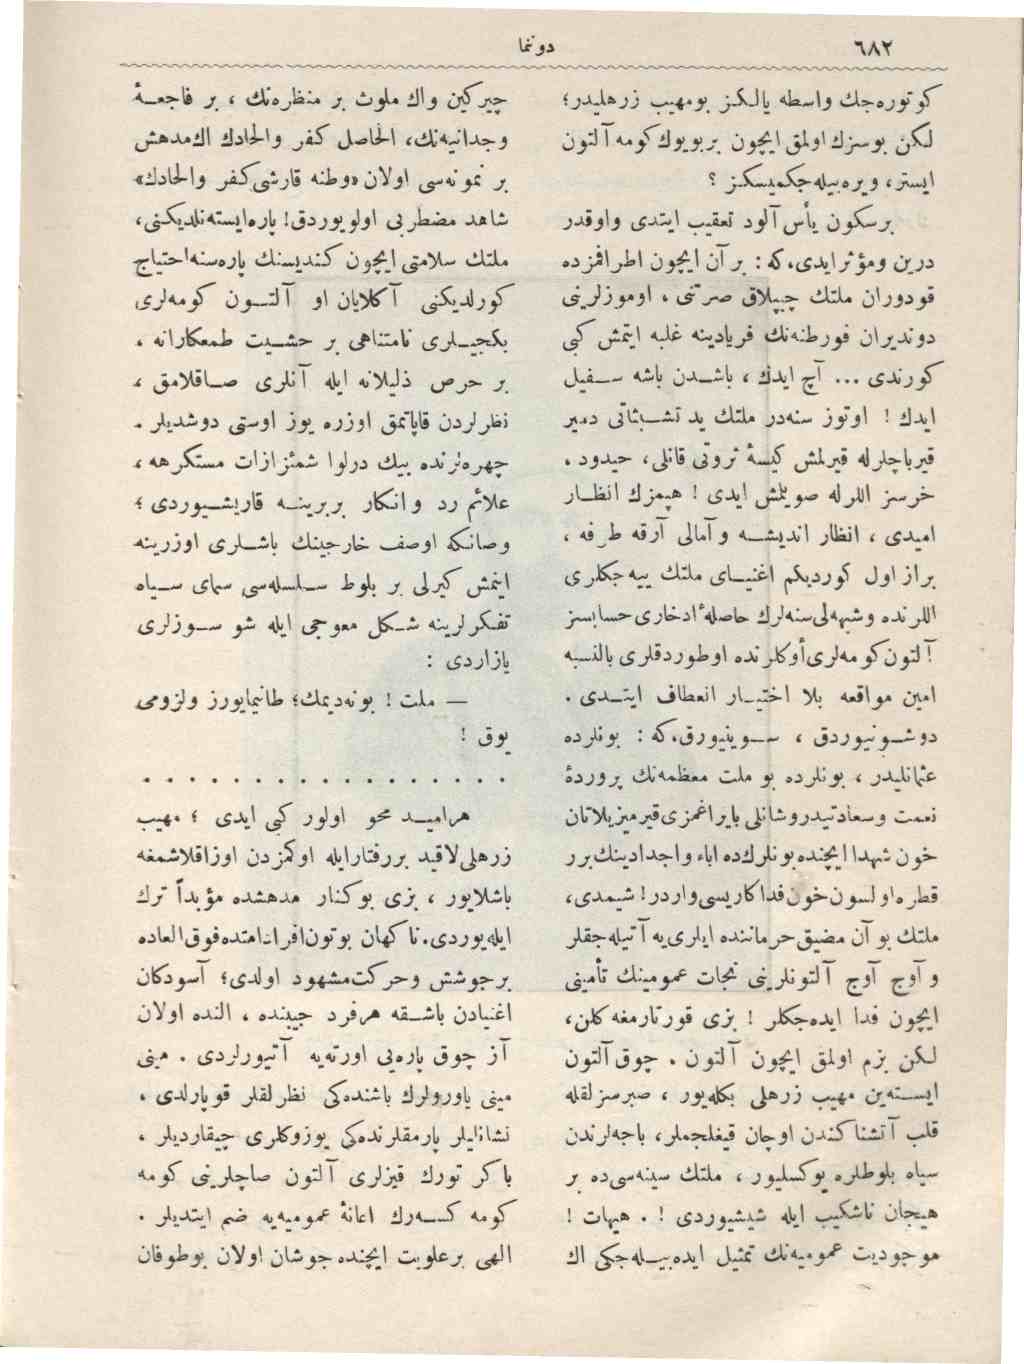 ٦٨٢
دوننما
كوتوره‌جك واسطه يالكز بومهيب زرهليدر؛
لكن بوسزك اولمق ايچون بربويوك كومه آلتون
ايستر، ويره‌بيله‌جكميسكز ؟
برسكون يأس آلود تعقيب ايتدى واوقدر
درين ومؤثر ايدى،كه : بر آن ايچون اطرافمزده
قودوران ملتك چيپلاق صرتنى ، اوموزلرينى
دونديران فورطنه‌نك فريادينه غلبه ايتمش كبى
كورندى ... آچ ايدك ، باشدن باشه سفيل
ايدك ! اوتوز سنه‌در ملتك يد تشبثاتى دمير
قيرباچلرله قيرلمش كيسهٔ ثروتى قانلى ، حيدود ،
خرسز اللرله صويلمش ايدى ! هپمزك انظار
اميدى ، انظار انديشه و آمالى آرقه طرفه ،
براز اول كورديكم اغنياى ملتك ييه‌جكلرى
اللرنده وشبهه‌لى سنه‌لرك حاصلهٔ ادخارى حسابسز
آلتون كومه‌لرى أوكلرنده اوطوردقلرى بالنسبه
امين مواقعه بلا اختيار انعطاف ايتدى .
دوشونيوردق ، سوينيورق،كه : بونلرده
عثمانليدر ، بونلرده بو ملت معظمه‌نك پروردهٔ
نعمت وسعادتيدروشانلى بايراغمزى قيرميزيلاتان
خون شهدا ايچنده بونلرك‌ده اباء واجدادينك برر
قطره اولسون خون فداكاريسى واردر! شيمدى ،
ملتك بو آن مضيق حرماننده ايلرى‌يه آتيله‌جقلر
و آوج آوج آلتونلرينى نجات عمومينك تأمينى
ايچون فدا ايده‌جكلر ! بزى قورتارمغه كلن،
لكن بزم اولمق ايچون آلتون ، چوق آلتون
ايسته‌ين مهيب زرهلى بكله‌يور ، صبرسزلقله
قلب آتشناكندن اوچان قيغلجملر، باجه‌لرندن
سياه بلوطلره يوكسليور ، ملتك سينه‌سى‌ده بر
هيجان ناشكيب ايله شيشيوردى ! . هيهات !
موجوديت عموميه‌نك تمثيل ايده‌بيله‌جكى اك
چيركين واك ملوث بر منظره‌نك ، بر فاجعهٔ
وجدانيه‌نك، الحاصل كفر والحادك اك‌مدهش
بر نمونه‌سى اولان «وطنه قارشى‌كفر والحادك»
شاهد مضطربى اولويوردق! پاره‌ايسته‌نلديكنى،
ملتك سلامتى ايچون كنديسنك پاره‌سنه‌احتياج
كورلديكنى آكلايان او آلتون كومه‌لرى
بكجيلرى نامتناهى بر حشيت طمعكارانه ،
بر حرص ذليلانه ايله آنلرى صاقلامق ،
نظرلردن قاپاتمق اوزره يوز اوستى دوشديلر .
چهره‌لرنده بيك درلوا شمئزازات مستكرهه ،
علائم رد وانكار بربرينه قاريشيوردى ؛
وصانكه اوصف خارجينك باشلرى اوزرينه
اينمش كيرلى بر بلوط سلسله‌سى سماى سياه
تفكرلرينه شكل معوجى ايله شو سوزلرى
يازاردى :
— ملت ! بونه‌ديمك؛ طانيمايورز ولزومى
يوق !
. . . . . . . . . . . . . . . . .
هراميد محو اولور كبى ايدى ؛ مهيب
زرهلى‌لاقيد بررفتارايله اوكمزدن اوزاقلاشمغه
باشلايور ، بزى بوكنار مدهشده مؤبداً ترك
ايله‌يوردى. ناكهان بوتون‌افرادامتده فوق‌العاده
برجوشش وحركت‌مشهود اولدى؛ آسودكان
اغنيادن باشقه هرفرد جيبنده ، النده اولان
آز چوق پاره‌يى اورته‌يه آتيورلردى . مينى
مينى ياورولرك باشنده‌كى نظرلقلر قوپارلدى ،
نشانليلر پارمقلرنده‌كى يوزوكلرى چيقارديلر ،
باكر تورك قيزلرى آلتون صاچلرينى كومه
كومه كسه‌رك اعانهٔ عموميه‌يه ضم ايتديلر .
الهى برعلويت ايچنده جوشان اولان بوطوفان